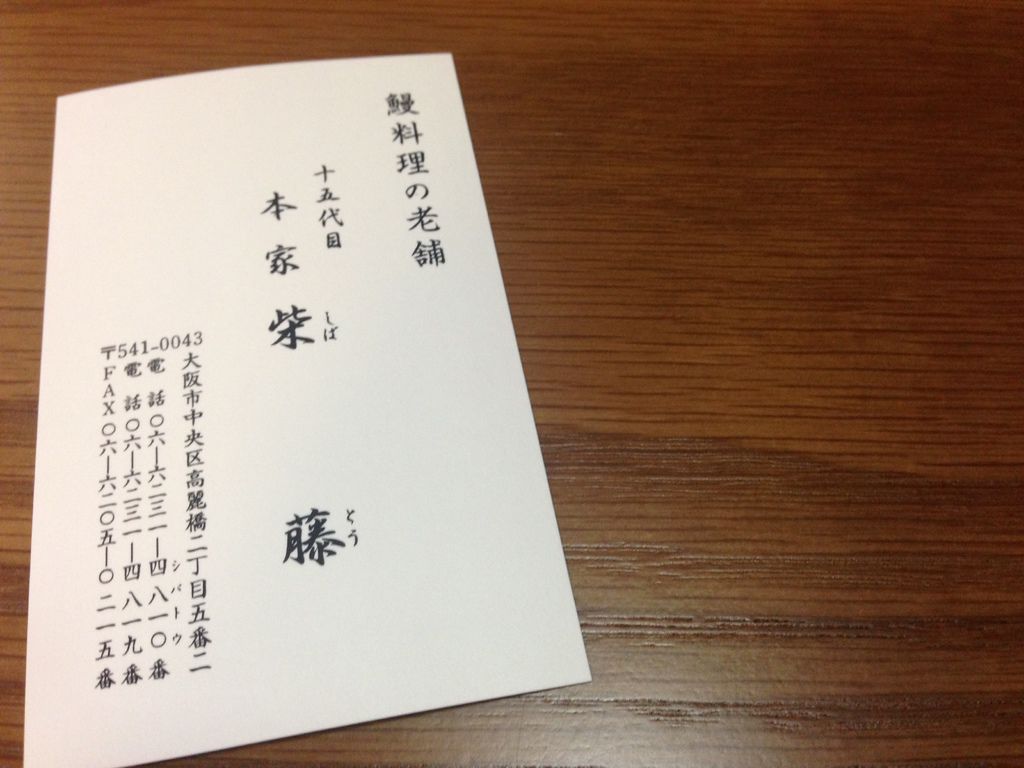 鰻料理の老舗
十五代目
本家柴藤
しばとう
〒541-0043
大阪市中央区高麗橋二丁目五番二
電話〇六―六二三一―四八一〇番
シバトウ
電話〇六―六二三一―四八一九番
FAX〇六―六二〇五―〇二一五番